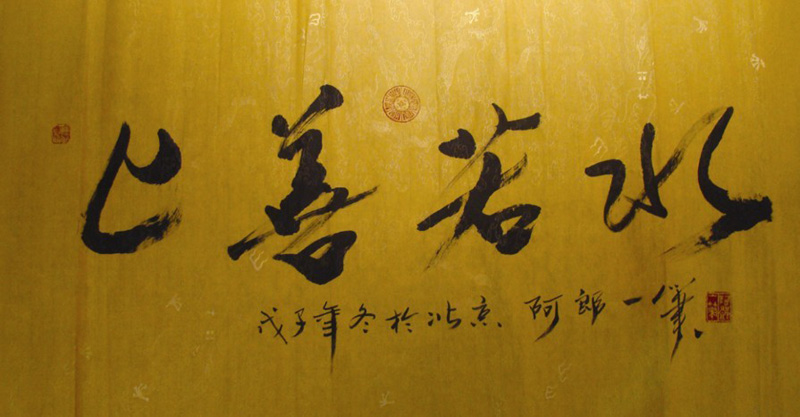 上善若水
戊子年冬於北京 阿郎一笔